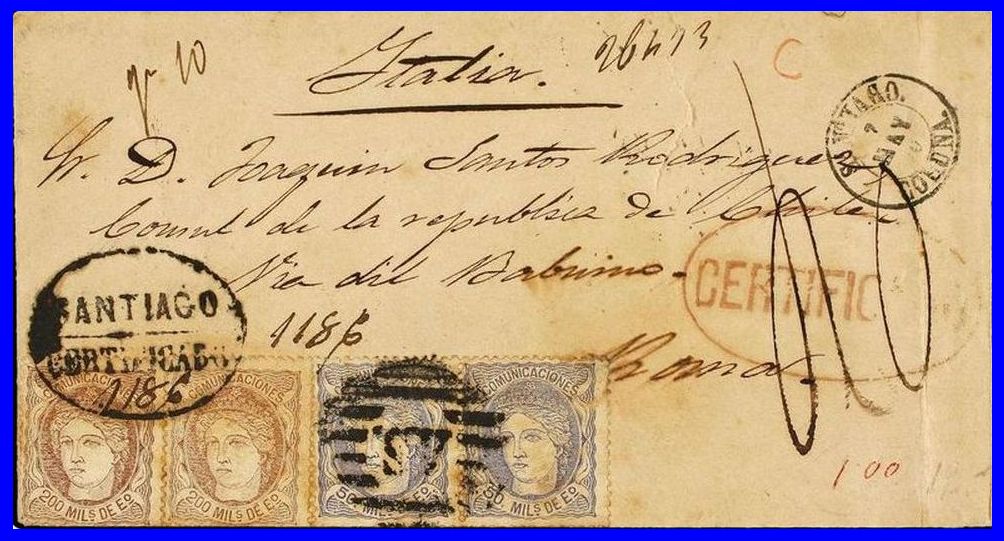 Italia.
26473
10
C
Sr. D. Joaquin Santos Rodriguez
Consul de la republica de Chile.
Via del Babuino.
Roma.
1186
CORUÑA.
7
MAY
SANTIAGO
CERTIFICADO
1186
CERTIFIC
100
COMUNICACIONES
200 MILS DE EO
COMUNICACIONES
200 MILS DE EO
50 MILS DE EO
COMUNICACIONES
50 MILS DE EO